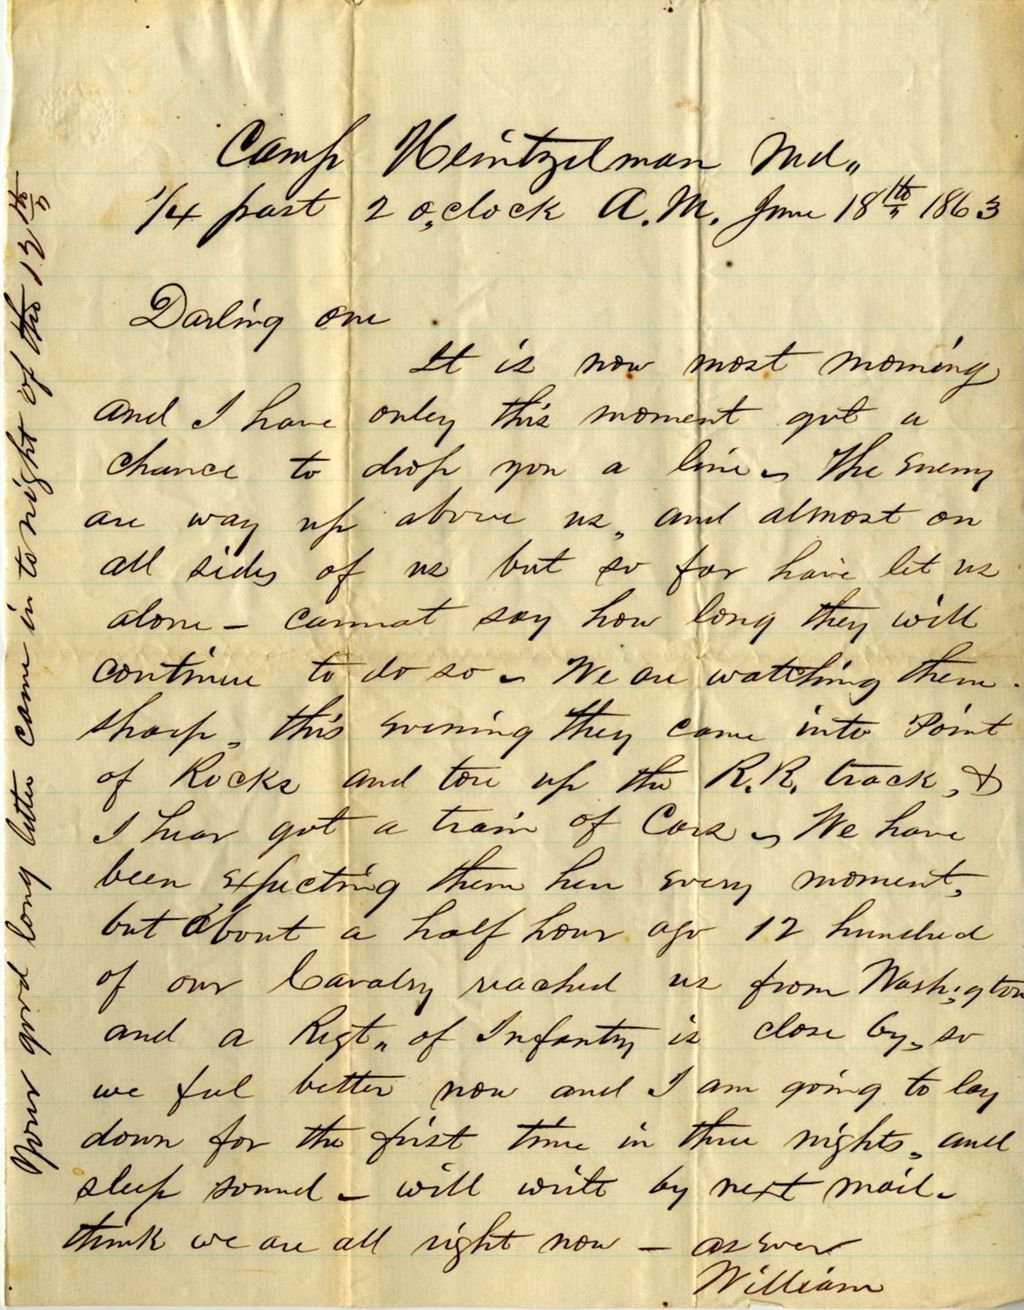 Camp Heintzelman Md.,
1/4 past 2 o,clock A.M. June 18th 1863
Darling one
It is now most morning
and I have only this moment got a
chance to drop you a line – The Enemy
are way up above us, and almost on
all sides of us but so far have let us
alone – cannot say how long they will
continue to do so – We are watching them
sharp, this evening they came into Point
of Rocks and tore up the R.R. track, &
I hear got a train of Cars – We have
been expecting them here every moment,
but about a half hour ago 12 hundred
of our Cavalry reached us from Washington
and a Regt,, of Infantry is close by, so
we feel better now and I am going to lay
down for the first time in three nights, and
sleep sound – will write by next mail –
think we are all right now – as ever
William
Your good long letter came in to night of the 13th